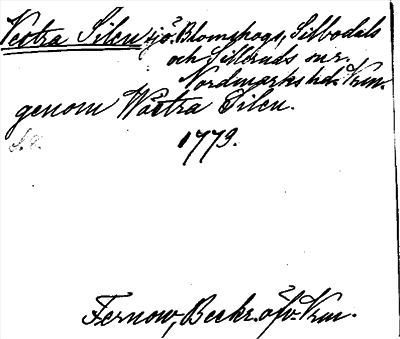 Vestra Silen sjö. Blomskogs, Silbodals
och Silleruds snr.
Nordmarks hd. Vrm.
genom Wästra Silen.
1779.
Fernow, Beskr. öfv. Vrm.